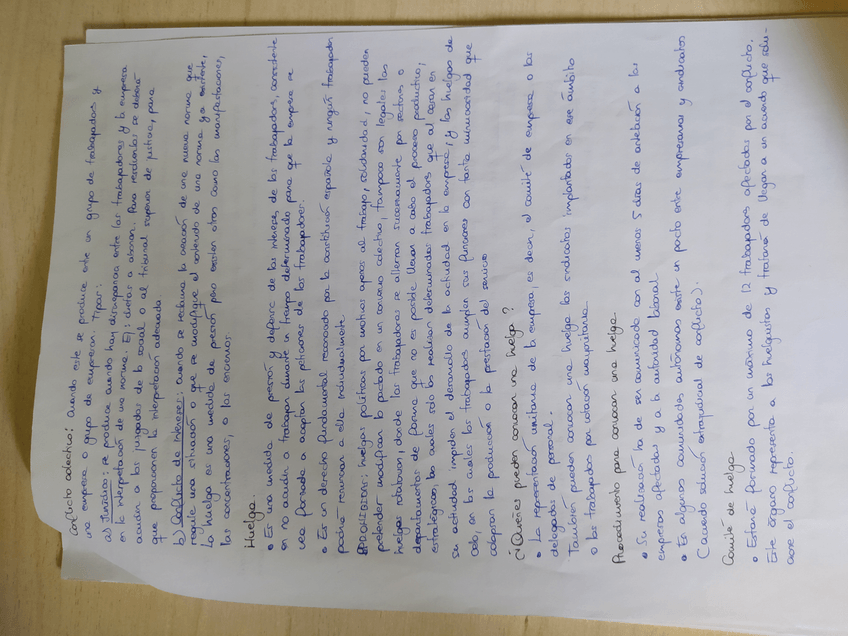 Conflicto colectivo: Cuando este se produce entre un grupo de trabajadores y
una empresa o grupo de empresarios. Tipos:
a) Jurídico: se produce cuando hay discrepancia entre los trabajadores y la empresa
en la interpretación de una norma. Ej: dietas a abonar. Para resolverlos se deberá
acudir a los juzgados de lo social o al tribunal superior de justicia, para
que proporcionen la interpretación adecuada.
b) Conflicto de intereses: cuando se reclama la creación de una nueva norma que
regule una situación o que se modifique el contenido de una norma ya existente,
La huelga es una medida de presión pero existen otras como las manifestaciones,
las concentraciones, o los encierros.
Huelga.
• Es una medida de presión y defensa de los intereses de los trabajadores, consistente
en no acudir a trabajar durante un tiempo determinado para que la empresa se
vea forzada a aceptar las peticiones de los trabajadores.
• Es un derecho fundamental reconocido por la constitución española y ningún trabajador
podrá renunciar a ella individualmente.
: huelgas políticas por motivos ajenos al trabajo, solidaridad, no pueden
pretender modificar lo pactado en un convenio colectivo, tampoco son legales las
huelgas rotatorias, donde los trabajadores se alternan sucesivamente por sectores o
departamentos de forma que no es posible llevar a cabo el proceso productivo,
estratégicas, las cuales solo las realizan determinados trabajadores que al cesar en
su actividad impiden el desarrollo de la actividad en la empresa, y las huelgas de
celo, en las cuales los trabajadores cumplen sus funciones con tanta minuciosidad que
colapsan la producción o la prestación del servicio
¿Quienes pueden convocar una huelga?
• La representación unitaria de la empresa, es decir, el comité de empresa o los
delegados de personal.
También pueden convocar una huelga los sindicatos implantados en ese ámbito
o los trabajadores por votación mayoritaria.
Procedimiento para convocar una huelga
• Su realización ha de ser comunicada con al menos 5 días de antelación a los
empresarios afectados y a la autoridad laboral.
• En algunas comunidades autónomas existe un pacto entre empresarios y sindicatos
(acuerdo solución extrajudicial de conflicto).
Comité de huelga
• Estará formado por un máximo de 12 trabajadores afectados por el conflicto.
Este órgano representa a los huelguistas y tratará de llegar a un acuerdo que solu-
cione el conflicto.